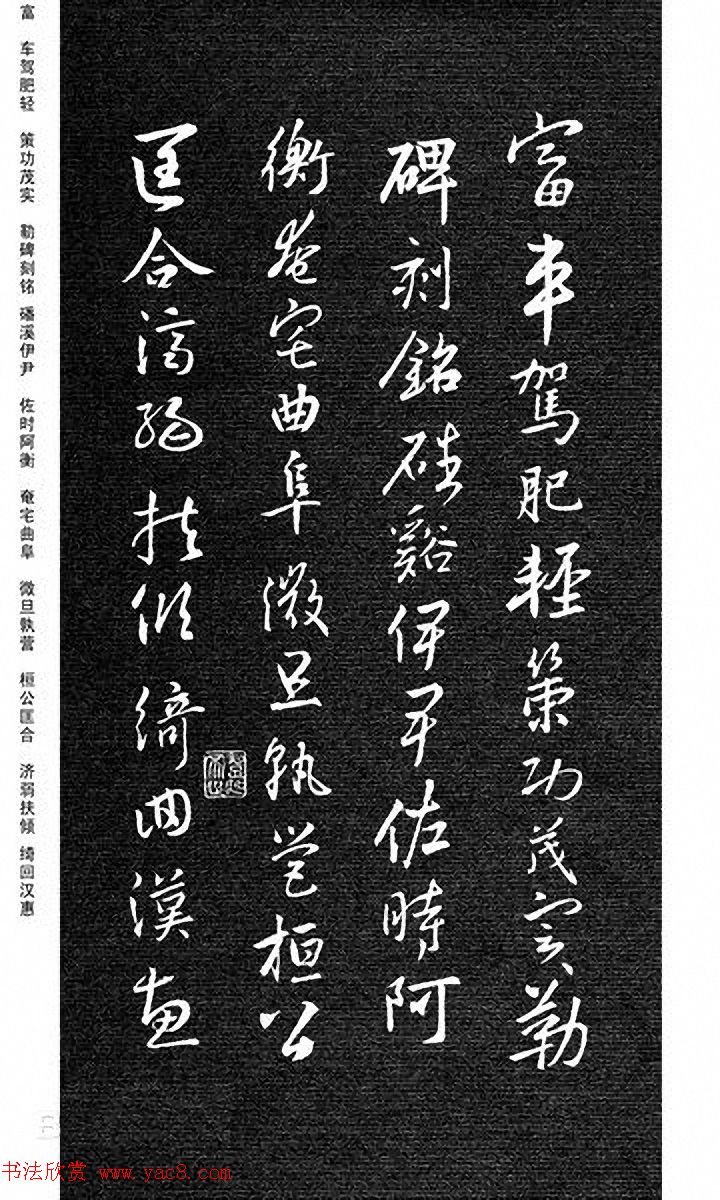 富車駕肥輕策功茂實勒
碑刻銘磻谿伊尹佐時阿
衡奄宅曲阜微旦孰營桓公
匡合濟弱扶傾綺迴漢惠
富 车驾肥轻 策功茂实 勒碑刻铭 磻溪伊尹 佐时阿衡 奄宅曲阜 微旦孰营 桓公匡合 济弱扶倾 绮回汉惠
书法欣赏 www.yac8.com